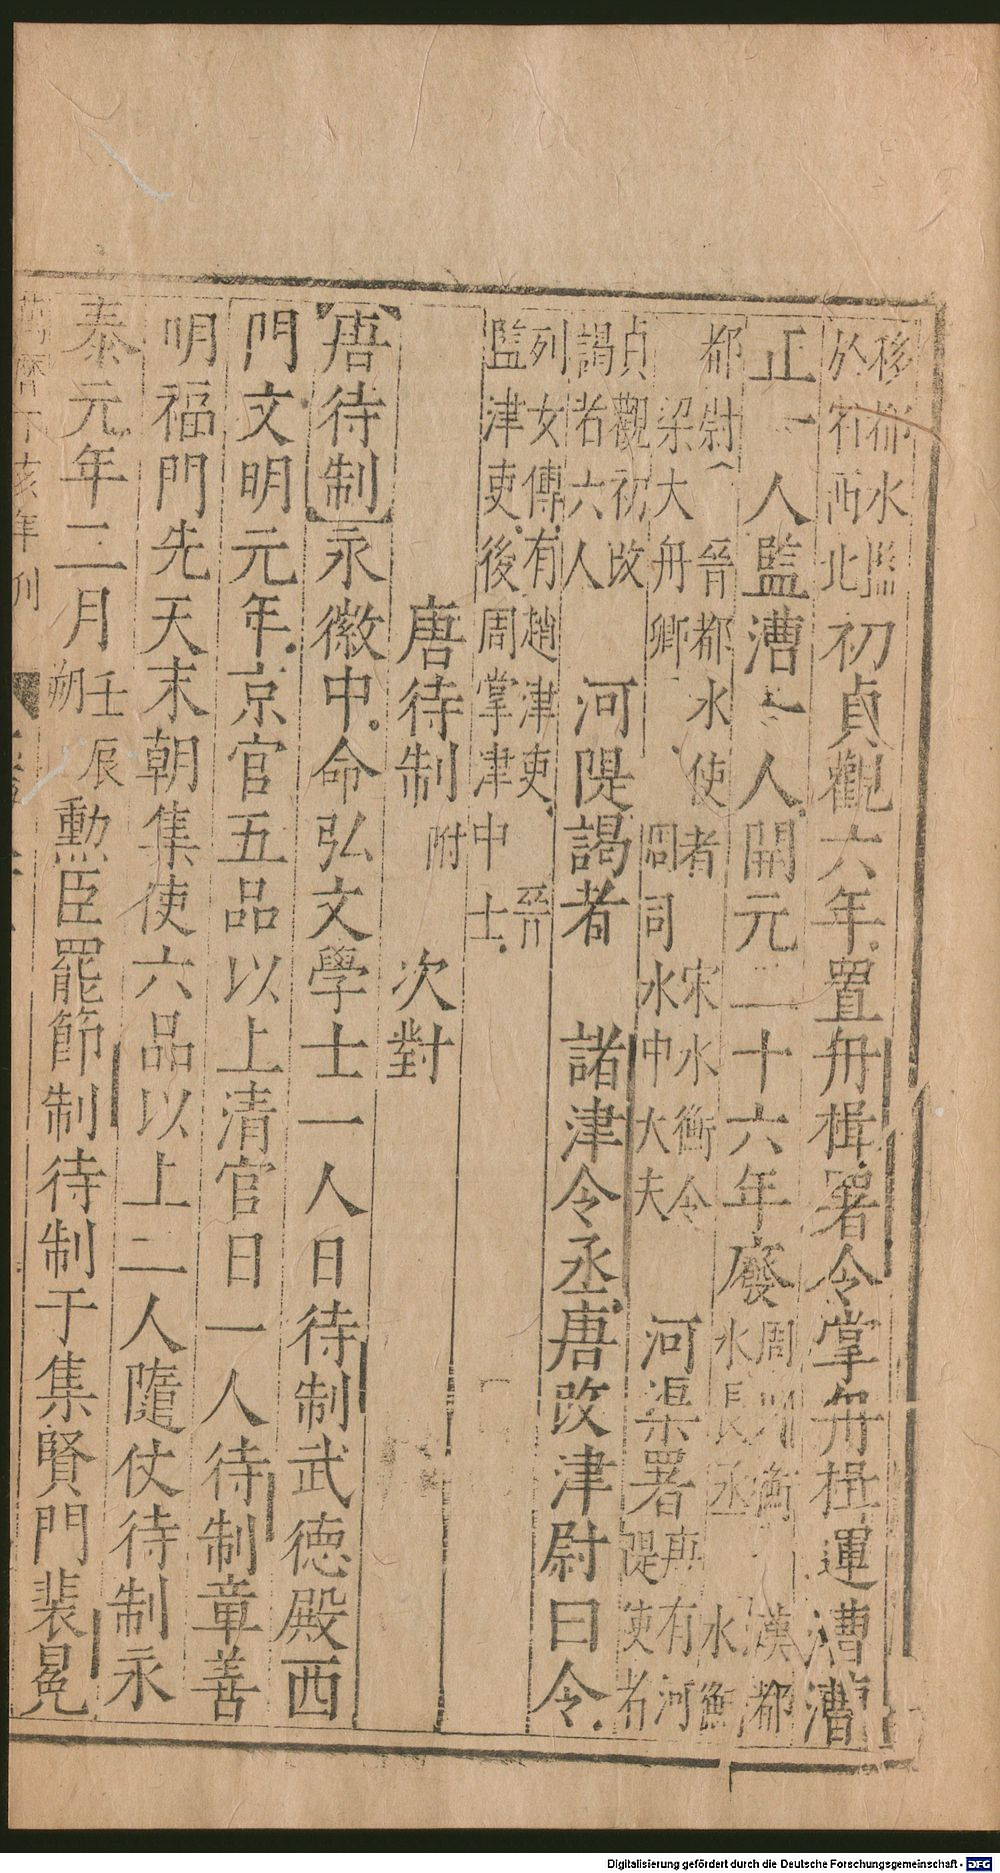 移都水監於府西北初貞觀六年置舟楫署令掌舟楫運漕漕
正一人監漕一人開元二十六年廢周川衡水長丞漢都水衡
都尉晉都水使者宋水衡令梁大舟卿同司水中大夫河渠署典有河隄使者
貞觀初改謁者六人河隄謁者 諸津令丞唐改津尉曰令
列女傳有趙津吏晉監津吏後周掌津中士
唐待制附 次對
唐待制永徽中命弘文學士一人日待制武德殿西
門文明元年京官五品以上清官日一人待制章善
明福門先天末朝集使六品以上二人隨仗待制永
泰元年二月壬辰朔勲臣罷節制待制于集賢門裴冕
萬曆丁亥年刊
Digitalisierung gefördert durch die Deutsche Forschungsgemeinschaft - DFG